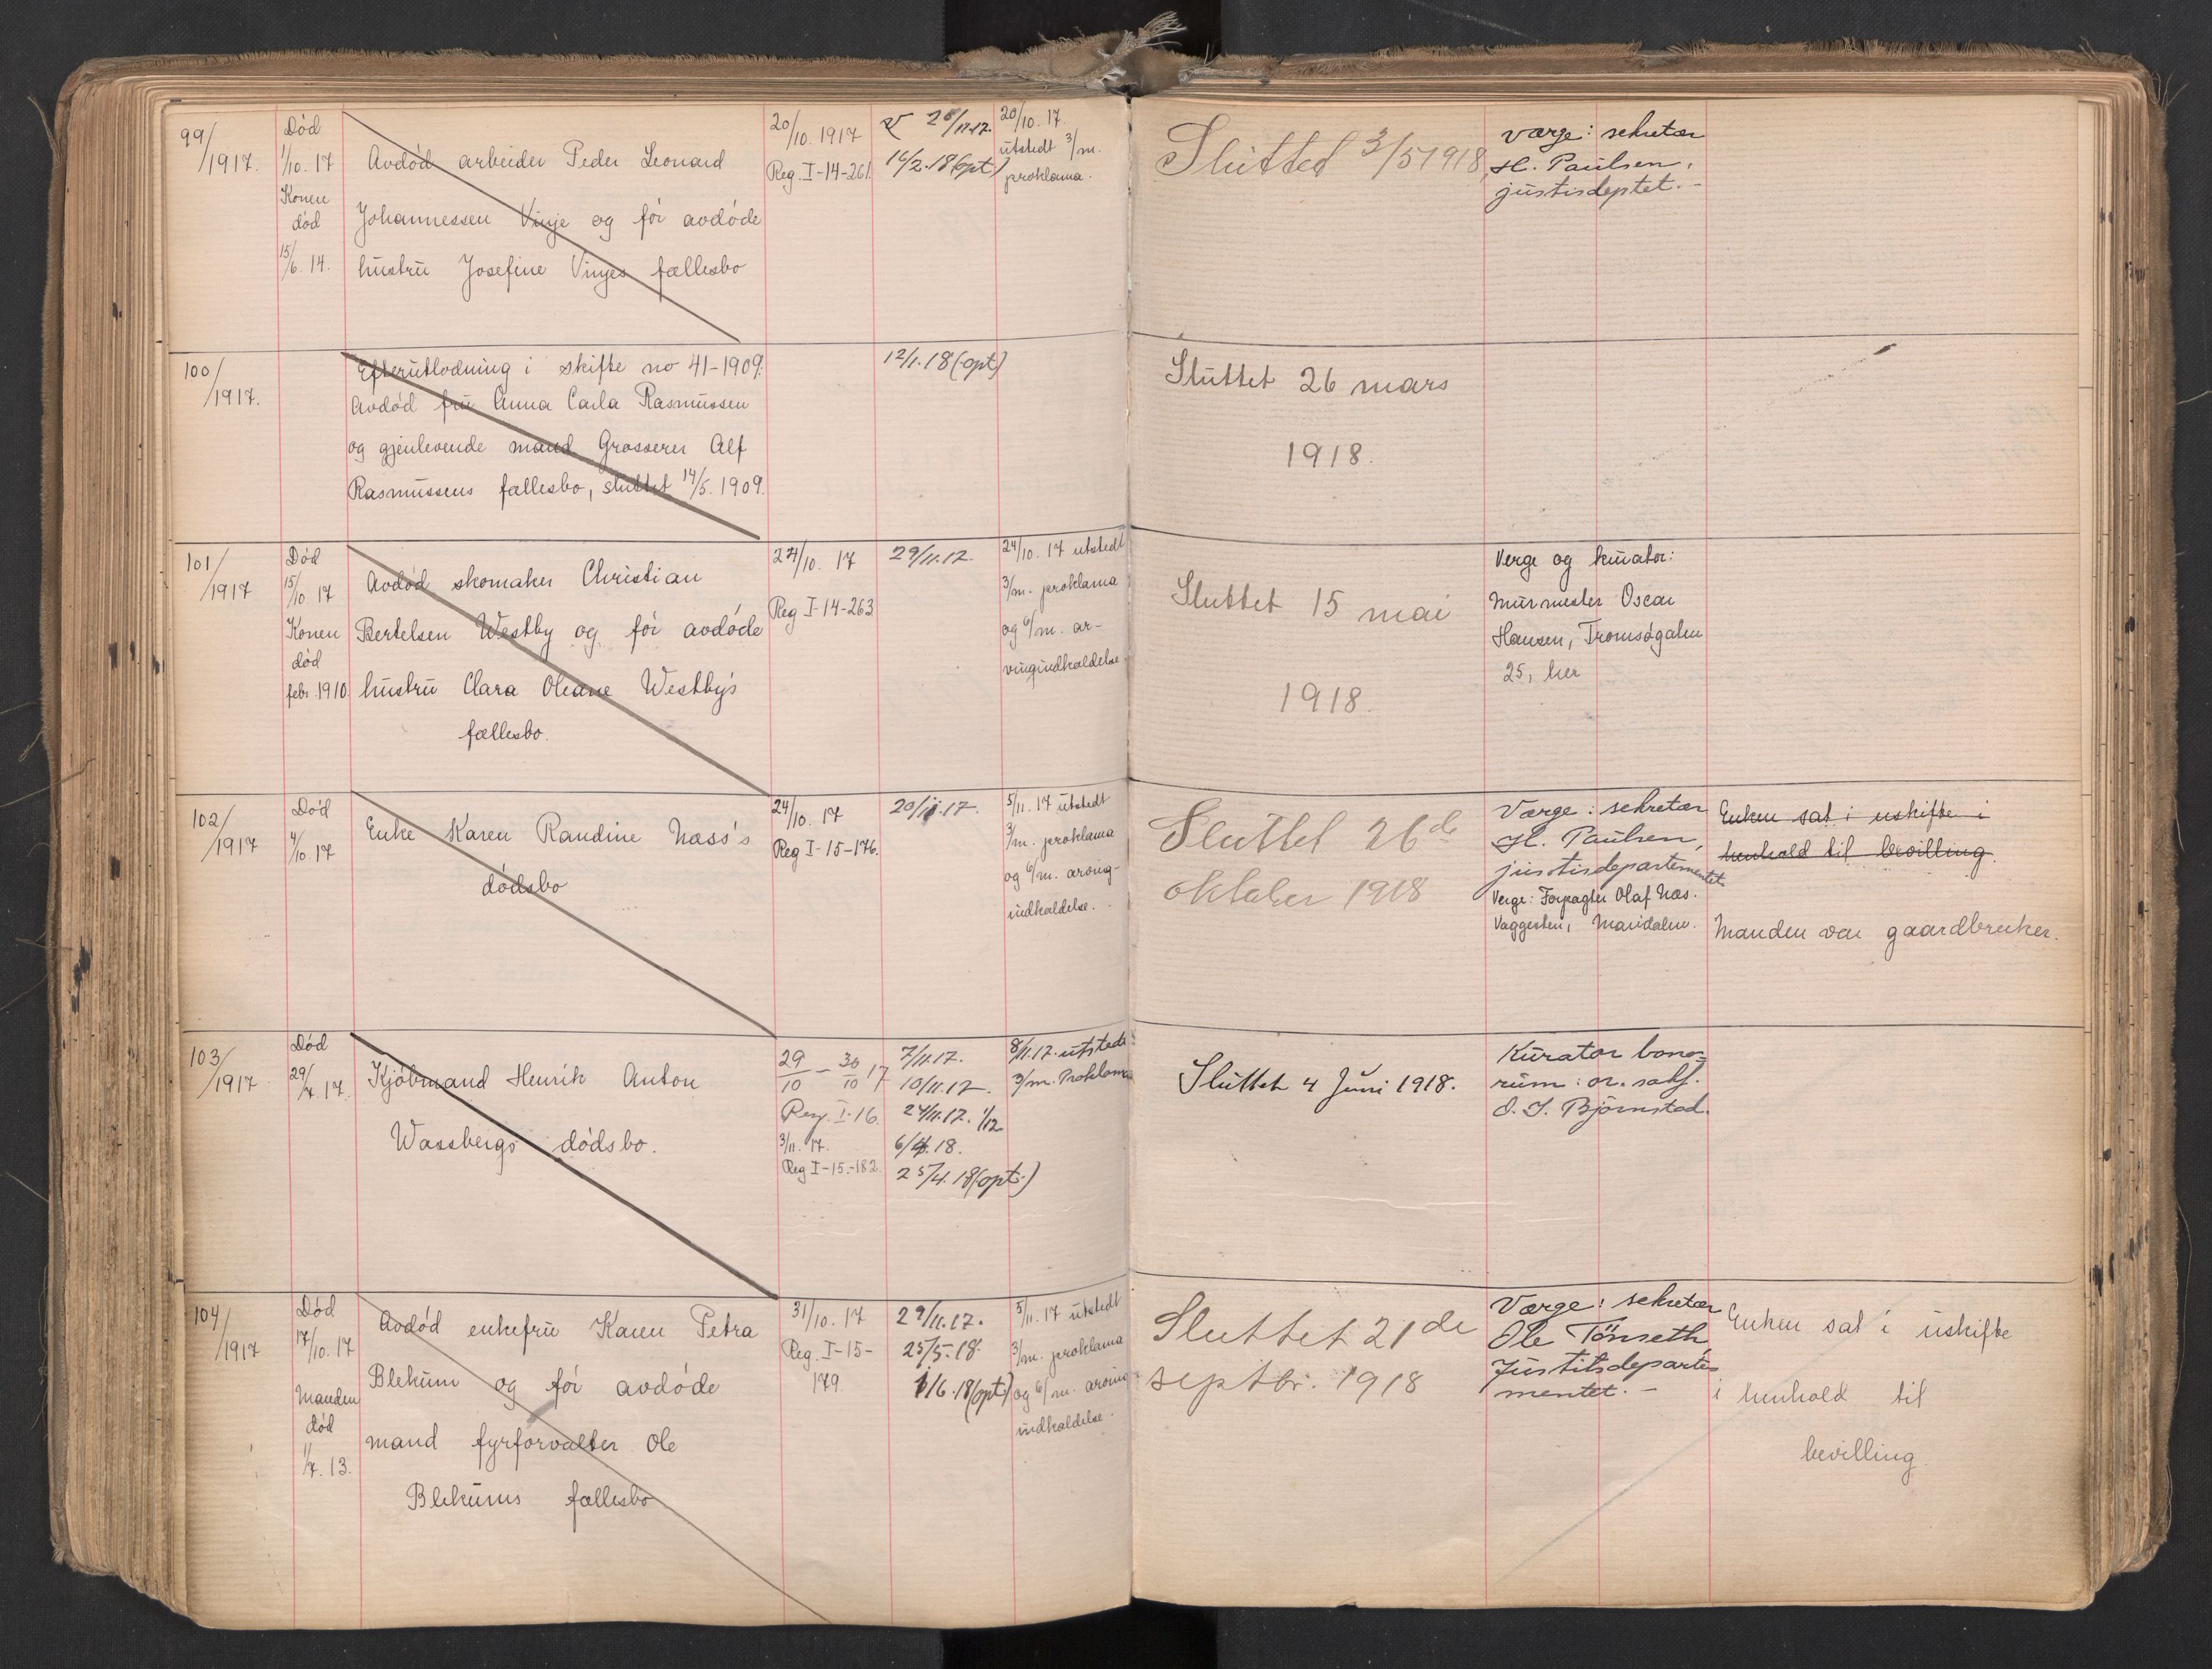 99/1917.
Død
1/10. 17
Konen
død
15/6. 14.
Avdød arbeider Peder Leonard
Johannessen Vinje og før avdøde
hustru Josefine Vinjes fællesbo
20/10. 1917
Reg. I-14-261.
28/11.17.
16/2.18 (opt)
20/10. 17.
utstedt 3/m.
proklama.
Sluttet 3/5 1918,
Værge: sekretær
H. Paulsen,
justisdeptet.-
100/1917.
Efterutlodning i skifte no 41-1909.
Avdød fru Anna Carla Rasmussen
og gjenlevende mand Grosserer Alf
Rasmussens fællesbo, sluttet 14/5. 1909.
12/1.18 (opt)
Sluttet 26 mars
1918.
101/1917
Død
15/10. 17
Konen
død
febr. 1910.
Avdød skomaker Christian
Bertelsen Westby og før avdøde
hustru Clara Oleane Westby's
fællesbo.
24/10. 17
Reg I-14-263
29/11.17.
24/10. 17 utstedt
3/m. proklama
og 6/m. ar-
vingindkaldelse.
Sluttet 15 mai
1918.
Verge og kurator:
Murmester Oscar
Hansen, Tromsøgaten
25, her
102/1917
Død
4/10. 17
Enke Karen Randine Næss's
dødsbo
24/10. 17
Reg I-15-176.
20/11.17.
5/11. 17 utstedt
3/m. proklama
og 6/m. arving-
indkaldelse.
Sluttet 26de
oktober 1918
Værge: sekretær
H. Paulsen,
justisdepartementet
Verge: Forpagter Olaf Næs.
Vaggesten, Maridalen.
Enken sat i uskifte i
henhold til bevilling.
Manden var gaardbruker.
103/1917
Død
29/7. 17.
Kjøbmand Henrik Anton
Wassbergs dødsbo.
29/10 - 30/10 17
Reg. I-16.
3/11. 17.
Reg I-15-182.
7/11.17.
10/11.17.
24/11.17. 1/12
6/4.18.
25/4.18 (opt.)
8/11.17. utstedt
3/m. Proklama
Sluttet 4 Juni 1918.
Kurator bono-
rum: or. sakf.
O. J. Bjørnstad.
104/1917
Død
17/10. 17
Manden
død
1/7. 13.
Avdød enkefru Karen Petra
Blekum og før avdøde
mand fyrforvalter Ole
Blekums fællesbo
31/10. 17
Reg. I-15-
179.
29/11.17.
25/5.18.
1/6.18 (opt.)
5/11. 17 utstedt
3/m. proklama
og 6/m. arving-
indkaldelse.
Sluttet 21de
septbr. 1918
Værge: sekretær
Ole Tönseth,
Justitsdeparte-
mentet.-
Enken sat i uskifte
i henhold til
bevilling.